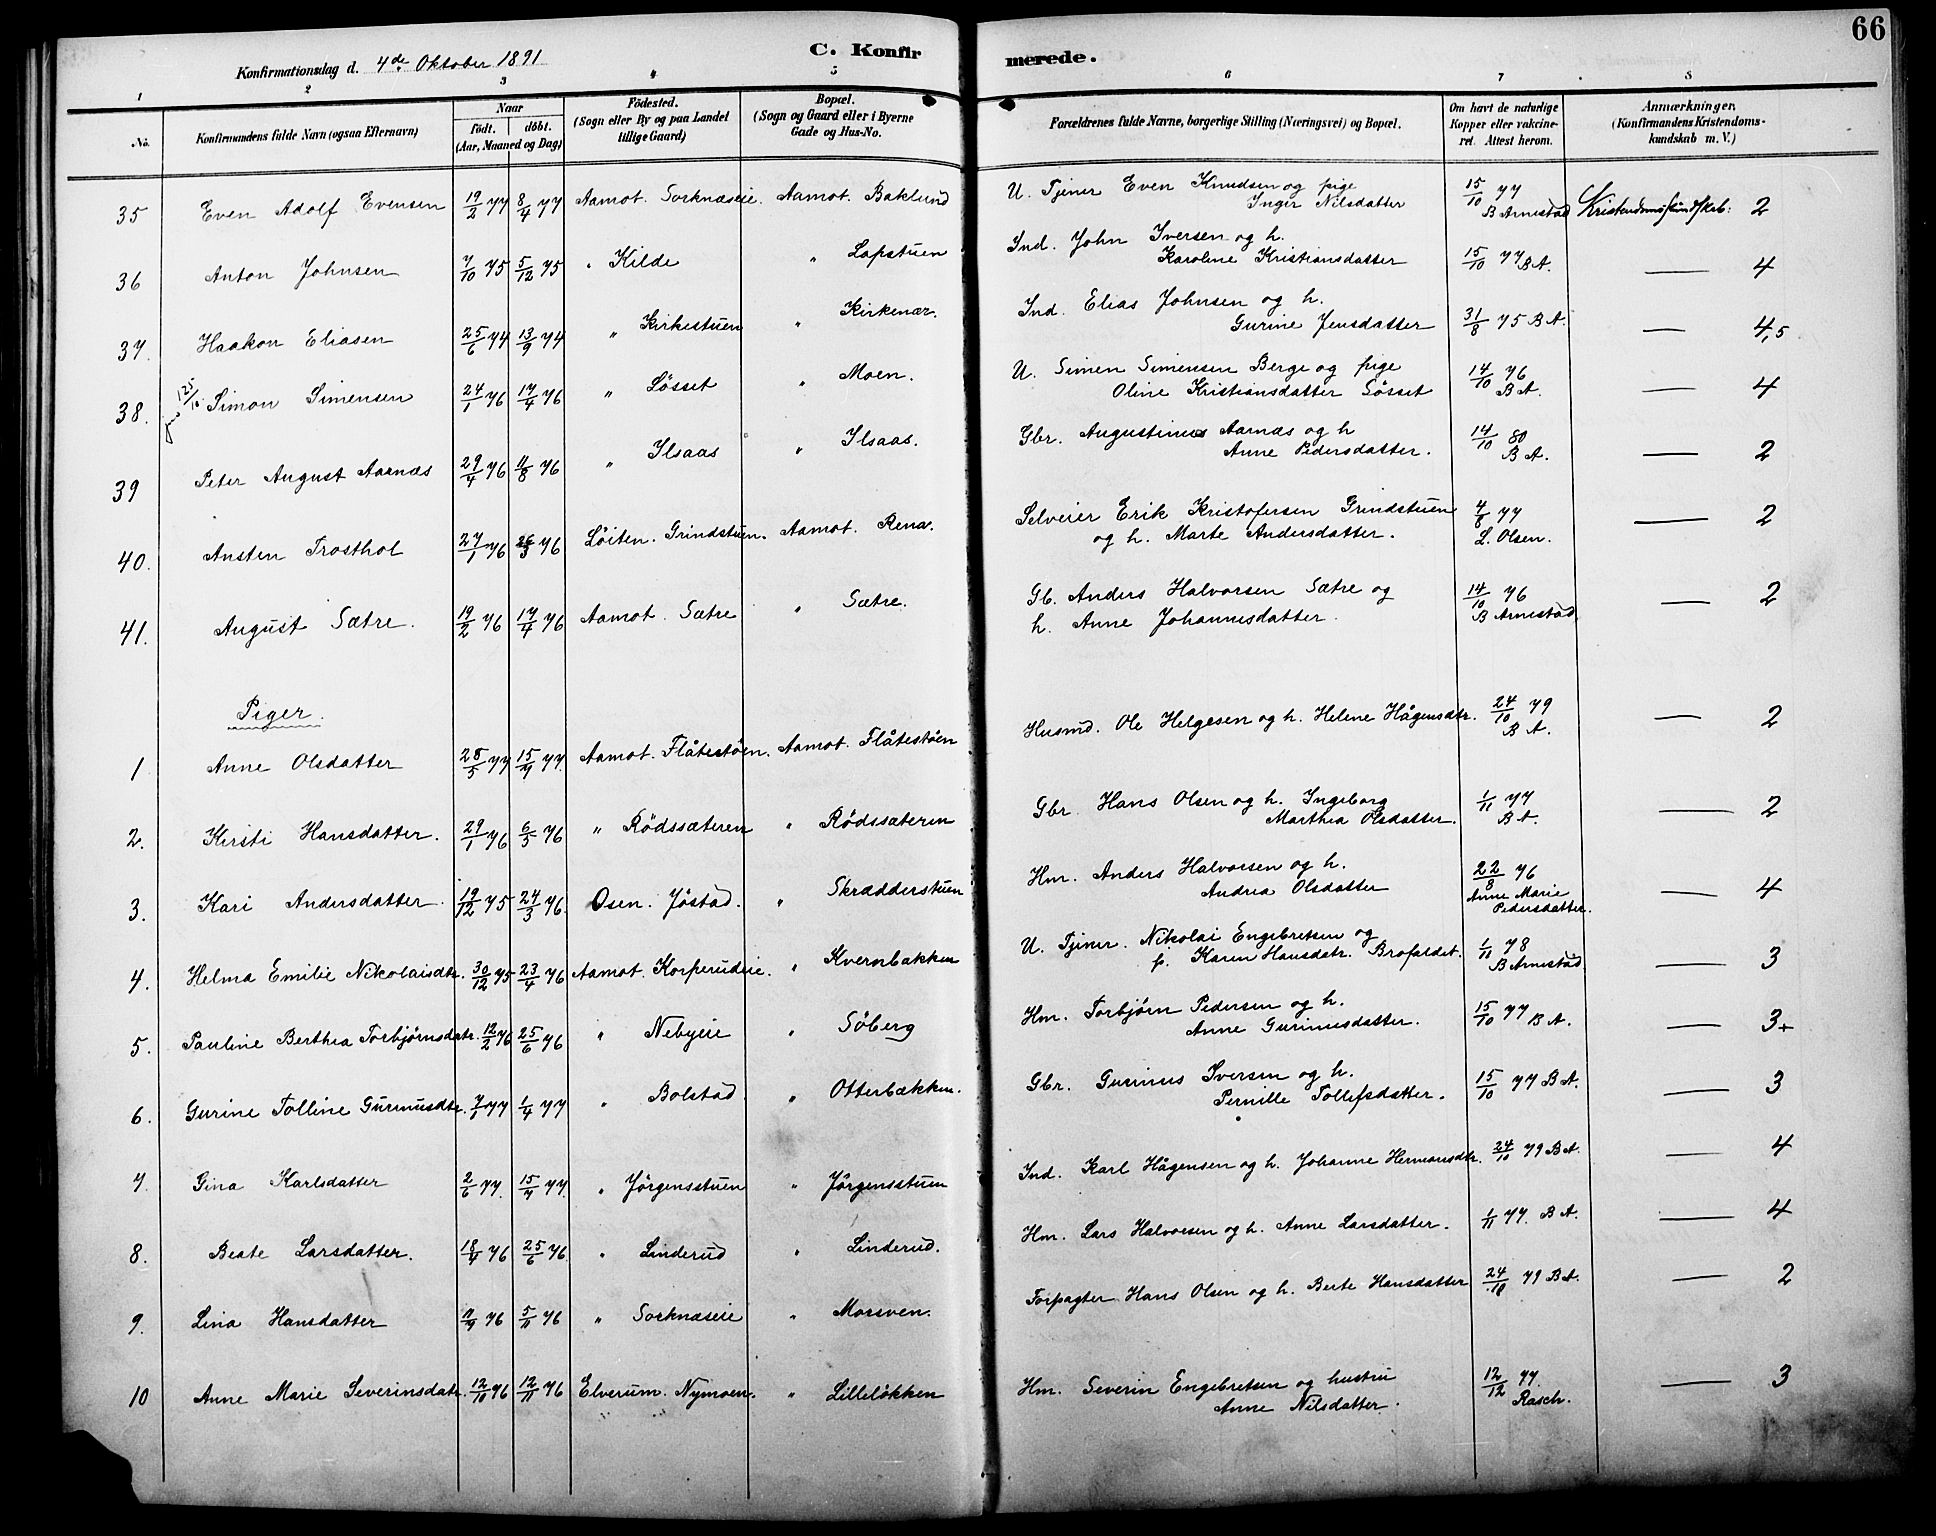 66
C. Konfirmerede.
Konfirmationsdag d. 4de Oktober 1891
1 2 3 4 5 6 7 8
No.
Konfirmandens fulde Navn (ogsaa Efternavn)
Naar
födt. döbt.
(Aar, Maaned og Dag)
Födested.
(Sogn eller By og paa Landet
tillige Gaard)
Bopæl.
(Sogn og Gaard eller i Byerne
Gade og Hus-No.
Forældrenes fulde Navne, borgerlige Stilling (Næringsvei) og Bopæl.
Om havt de naturlige
Kopper eller vakcine-
ret. Attest herom.
Anmærkninger.
(Konfirmandens Kristendoms-
kundskab m. V.)
35 Even Adolf Evensen 19/2 77 8/4 77 Aamot. Sorknæseie. Aamot. Baklund U. Tjener Even Knudsen og pige
Inger Nilsdatter 15/10 77 B Arnestad Kristendomskundskab: 2
36 Anton Johnsen 7/10 75 5/12 75 " Kilde " Lopstuen Ind. John Iversen og h.
Karoline Kristiansdatter 15/10 77 B A. — 4
37. Haakon Eliasen 25/6 74 13/9 74 " Kirkestuen " Kirkenær. Ind. Elias Johnsen og h.
Gurine Jensdatter 31/8 75 B A. — 4,5
38. Simon Simensen 24/1 76 17/4 76 " Løsset " Moen. U. Simen Simensen Berge og pige
Oline Kristiansdatter Løsset 14/10 76 B A. — 4
39 Peter August Aarnæs 29/4 76 11/8 76 " Ilsaas " Ilsaas. Gbr. Augustinus Aarnæs og h
Anne Pedersdatter. 14/10 80 B A. — 2
40. Ansten Trosthol 27/1 76 26/3 76 Løiten. Grindstuen. Aamot. Rena. Selveier Erik Kristofersen Grindstuen
og h. Marte Andersdatter. 4/8 77 L. Olsen. — 2
41. August Sætre. 19/2 76 17/4 76 Aamot. Sætre " Sætre. Gb. Anders Halvorsen Sætre og
h. Anne Johannesdatter. 14/10 76 B Arnestad. — 2
Piger.
1 Anne Olsdatter 28/5 77 15/7 77. Aamot. Flåtestøen. Aamot. Flåtestøen Husmd. Ole Helgesen og h. Helene Hågensdtr. 24/10 79 B A. — 2
2. Kirsti Hansdatter. 29/1 76 6/5 76 " Rödssæteren " Rödssæteren Gbr. Hans Olsen og h. Ingeborg
Marthea Olsdatter. 1/11 77 B A. — 2
3. Kari Andersdatter. 19/12 75 24/3 76. Osen. Jöstad. " Skrædderstuen Hm. Anders Halvorsen og h.
Andrea Olsdatter 22/8 76 Anne Marie
Pedersdatter. — 4
4. Helma Emilie Nikolaisdtr. 30/12 75 23/4 76 Aamot. Korperudeie. " Kvernbakken U. Tjener. Nikolai Engebretsen og
p. Karen Hansdatr. Brofaldet. 1/11 78 B Arnestad — 3
5. Pauline Berthea Torbjørnsdatr. 12/2 76 25/6 76 " Nebyeie " Söberg Hm. Torbjørn Pedersen og h.
Anne Gurinusdatter. 15/10 77 B A. — 3+
6. Gurine Tolline Gurinusdtr. 7/1 77 1/4 77 " Bolstad " Otterbækken. Gbr. Gurinus Iversen og h.
Pernille Tollefsdatter. 15/10 77 B A. — 3
7. Gina Karlsdatter 2/6 77. 15/7 77. " Jörgensstuen " Jörgensstuen Ind. Karl Hågensen og h. Johanne Hermansdtr. 24/10 79 B A. — 4
8. Beate Larsdatter. 18/4 76 25/6 76. " Linderud " Linderud. Hm. Lars Halvorsen og h. Anne Larsdatter. 1/11 77. B A. — 4
9. Lina Hansdatter 76 5/11 76 " Sorknæseie " Morsven. Forpagter Hans Olsen og h. Berte Hansdatter 24/10 79 B A. — 2
10 Anne Marie Severinsdatr. 12/10 76 12/11 76 Elverum. Nymoen. " Lilleløkken Hm. Severin Engebretsen og hustru
Anne Nilsdatter. 12/12 77. Rasch. — 3